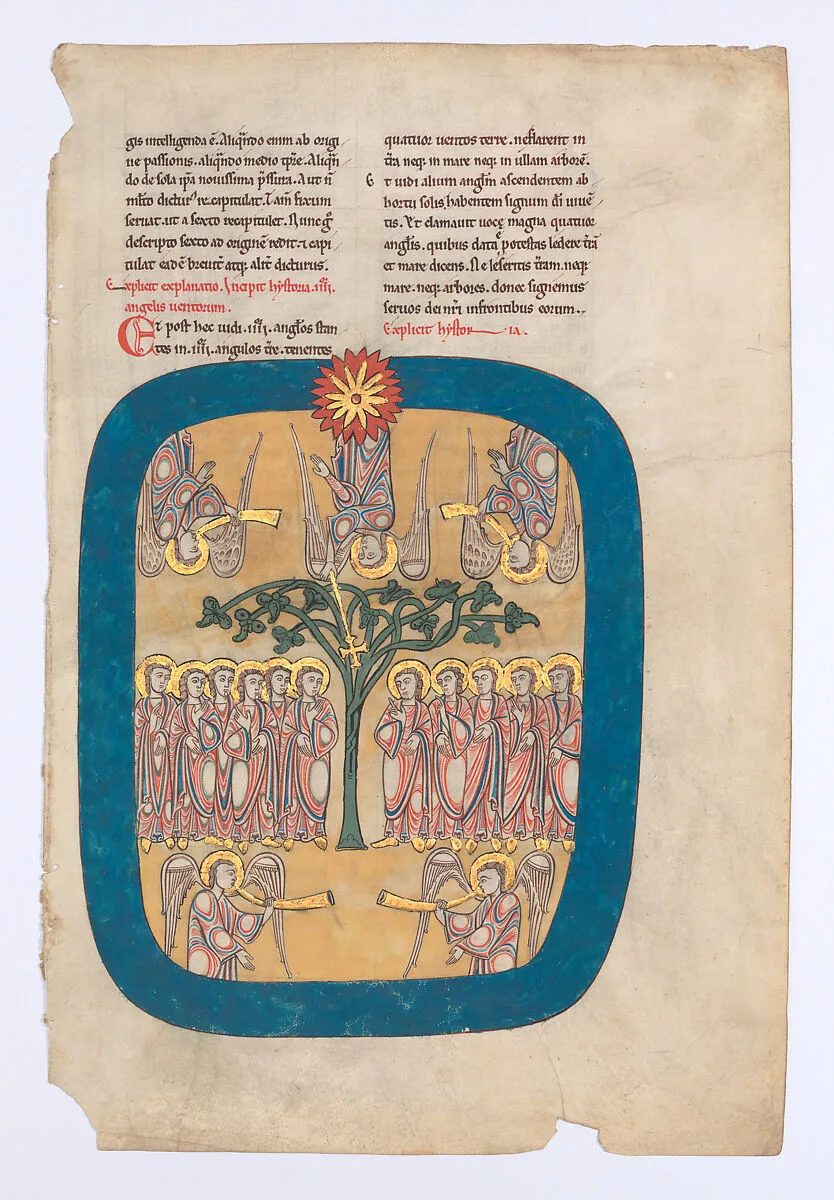 gis intelligenda ē. Aliqñdo enim ab origi
ne passionis. aliqñdo medio tp̄re. Aliqñ
do de sola ip̄a novissima p̄ssura. Aut ñ
mlto dictur⁹ recapitulat. Tam̄ fixum
servat. ut a sexto recapitulet. Nunc g°
descripto sexto ad originē redit. ⁊ capi
tulat eadē brevit̄ atq; alit̄ dicturus.
Explicit explanatio. Incipit hystoria. IIII.
angelis ventorum.
Et post hec vidi. IIII. angłos stan
tes in. IIII. angulos tr̄e. tenentes
quatuor ventos terre. ne flarent in
tr̄a neq; in mare neq; in ullam arborē.
Et vidi alium anglm̄ ascendentem ab
hortu solis, habentem signum dī̄ viuē
tis. Et clamavit vocę magna quatuor
angłis. quibus data ē potestas ledere tr̄a
et mare dicens. Ne leseritis tr̄am. neq;
mare. neq; arbores. donec signemus
servos dei nr̄i in frontibus eorum..
Explicit hystoria.